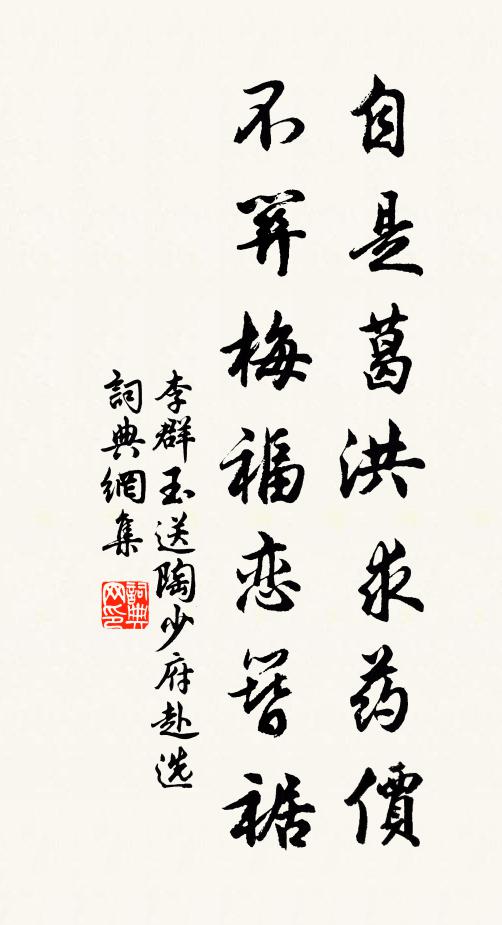 自是葛洪求药價
不算梅福恋簪裾
李群玉送陶少府赴选
詞典網集
詞典网印